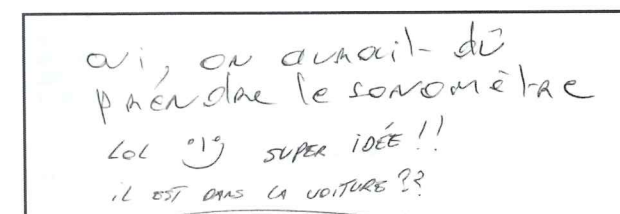 oui, on aurait dû
prendre le sonomètre
LOL :) SUPER IDÉE !!
iL EST DANS LA VOITURE ??